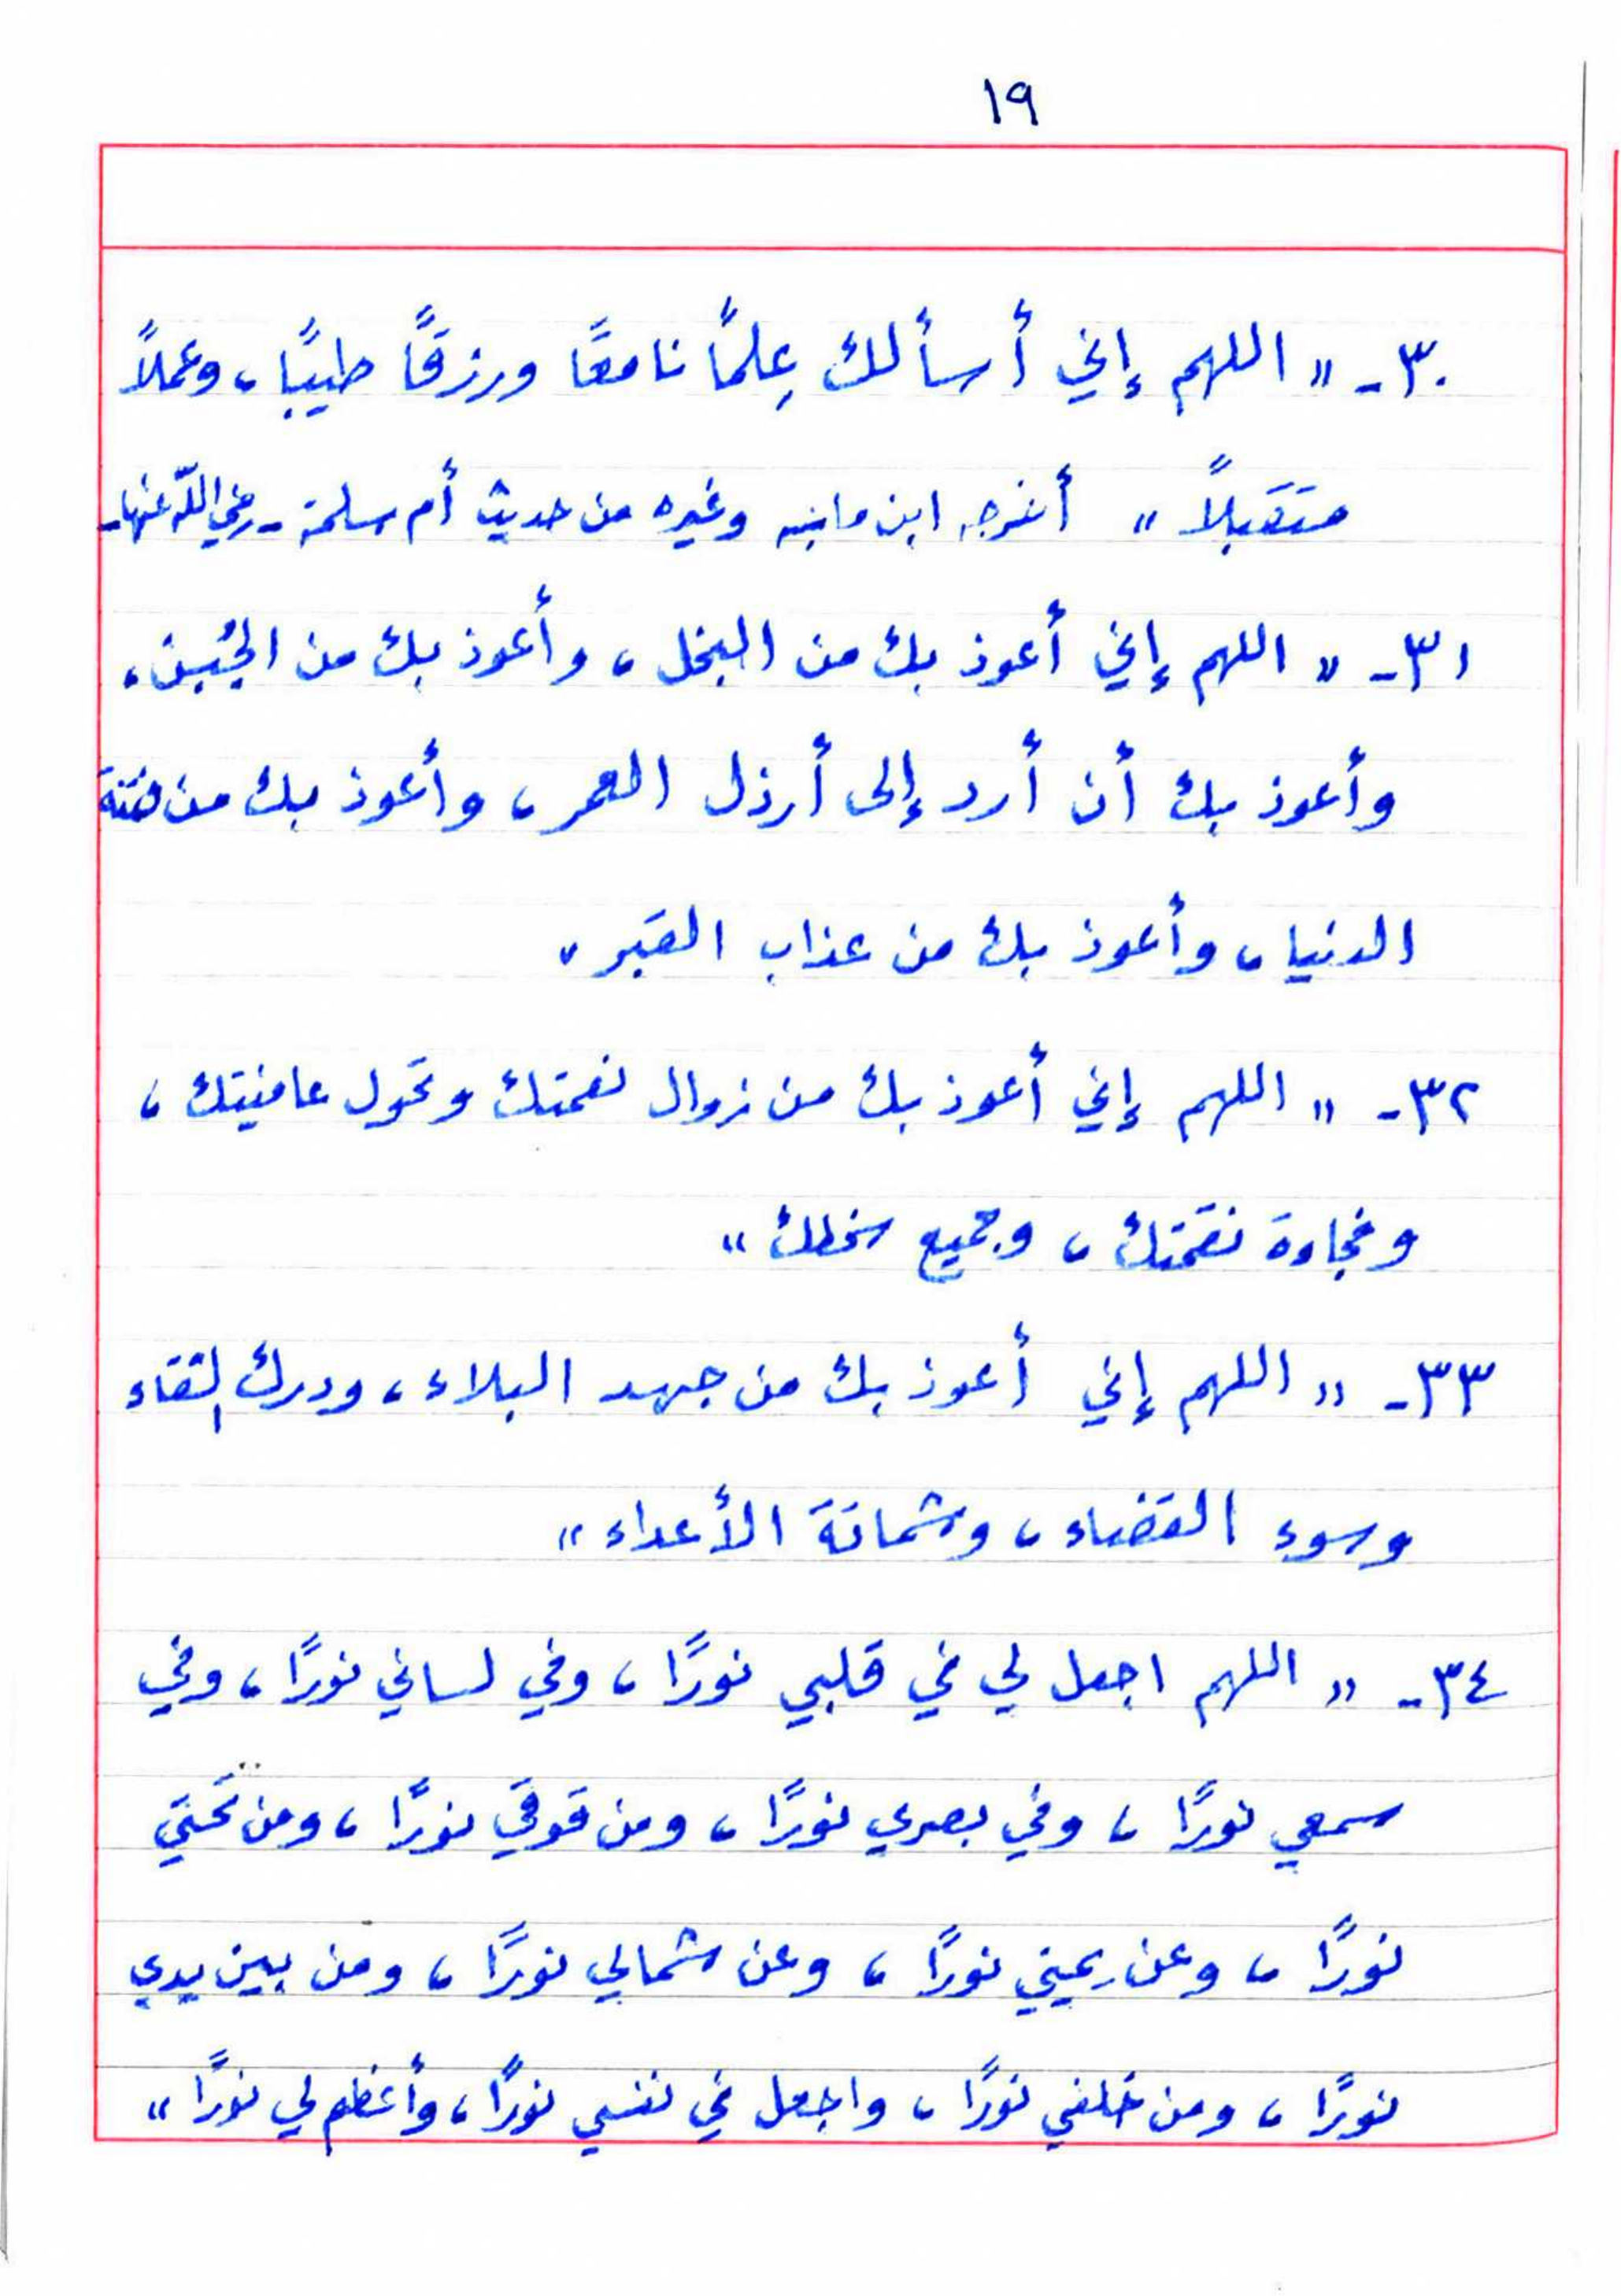 ١٩
٣٠ـ « اللهم إني أسألك عِلمًا نافعًا ورزقًا طيبًا، وعملاً
متقبلاً » أخرجه ابن ماجه وغيره من حديث أم سلمة ـ رضي الله عنها ـ
٣١ـ « اللهم إني أعوذ بك من البخل، وأعوذ بك من الجُبن،
وأعوذ بك أن أرد إلى أرذل العمر، وأعوذ بك من فتنة
الدنيا، وأعوذ بك من عذاب القبر »
٣٢ـ « اللهم إني أعوذ بك من زوال نعمتك وتحول عافيتك،
وفجاءة نقمتك، وجميع سخطك »
٣٣ـ « اللهم إني أعوذ بك من جهد البلاء، ودرك الشقاء
وسوء القضاء، وشماتة الأعداء »
٣٤ـ « اللهم اجعل لي في قلبي نورًا، وفي لساني نورًا، وفي
سمعي نورًا، وفي بصري نورًا، ومن فوقي نورًا، ومن تحتي
نورًا، وعن يميني نورًا، وعن شمالي نورًا، ومن بين يدي
نورًا، ومن خلفي نورًا، واجعل في نفسي نورًا، وأعظم لي نورًا »